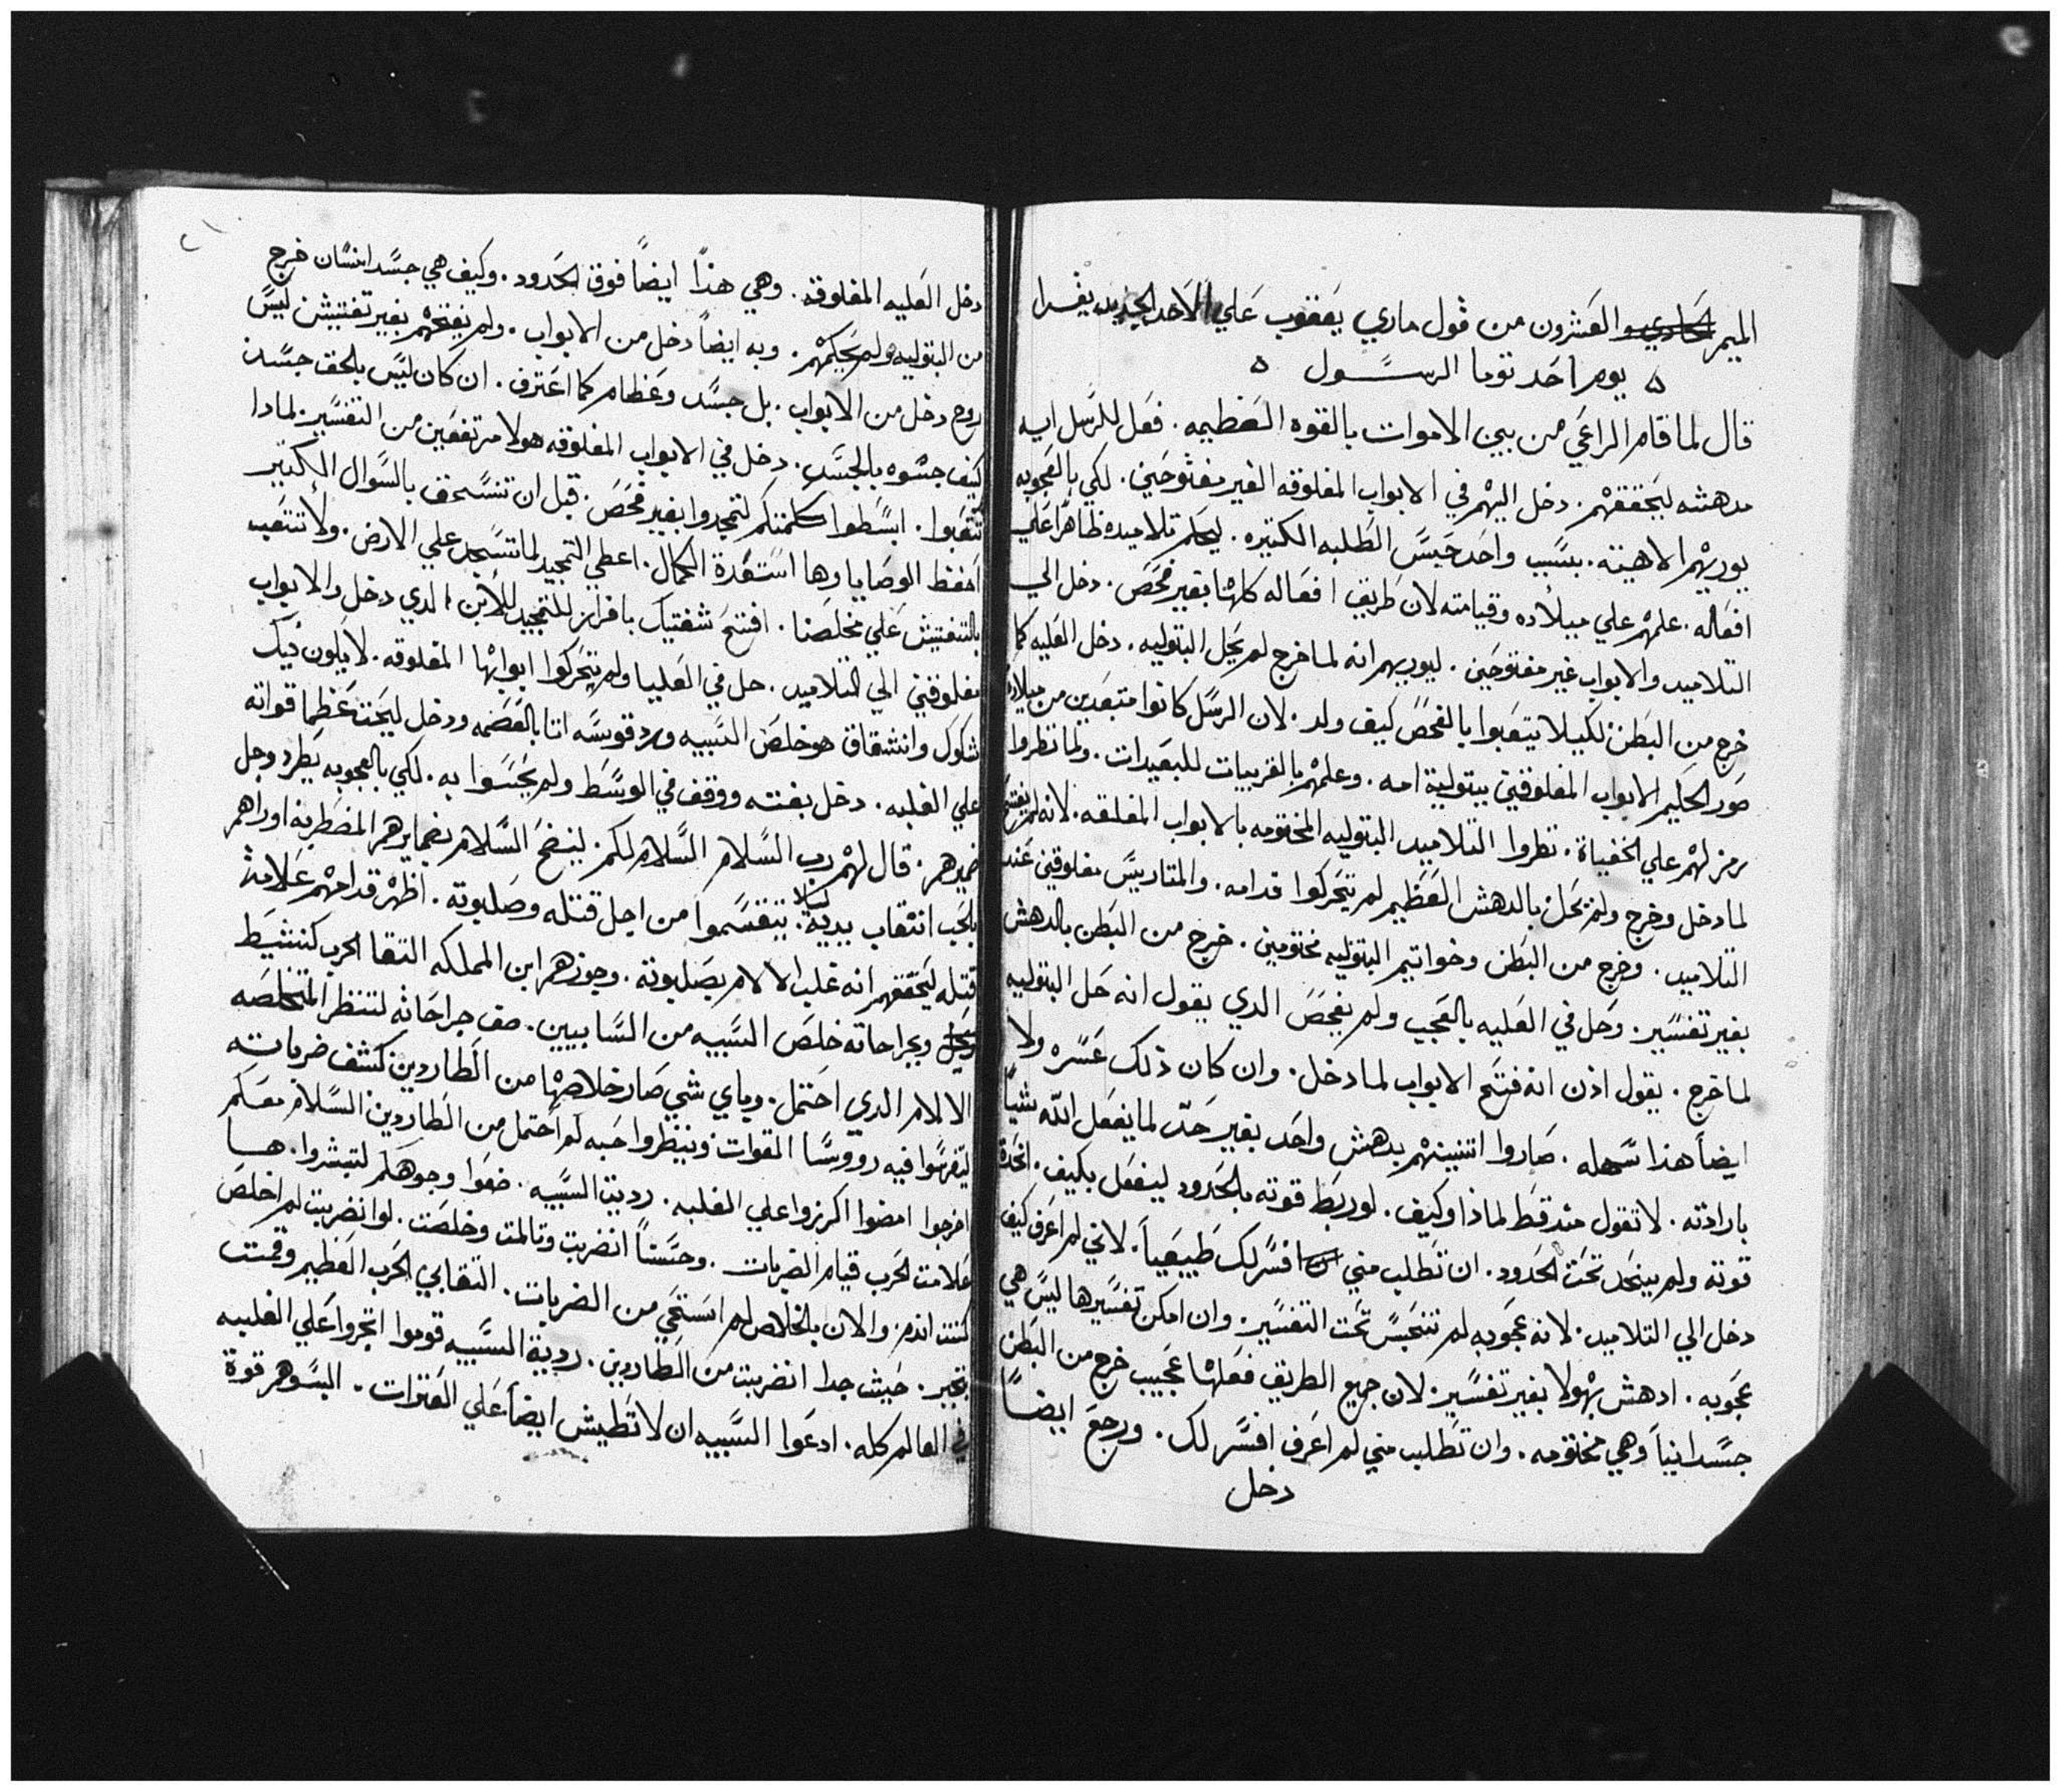 الميمر الحادي والعشرون من قول ماري يعقوب علي الاحد الجديد يقرا
يوم احد توما الرسول
قال لما قام الراعي من بين الاموات بالقوه العظيمه. فعل للرسل ايه
مدهشه ليحققهم. دخل اليهم في الابواب المغلوقه الغير مفتوحين. لكي بالعجوبه
يوريهم الاهيته. بسبب واحد حبس الطلبه الكتيره. ليعلم تلاميده ظاهرا علي
افعاله. علمهم علي ميلاده وقيامته لان طريق افعاله كلها بغير فحص. دخل الي
التلاميد والابواب غير مفتوحين. ليوريهم انه لما خرج لم يحل البتوليه. دخل العليه كما
خرج من البطن لكيلا يتعبوا بالفحص كيف ولد. لان الرسل كانوا متبعدين من ميلاده
صور الحكيم الابواب المغلوقين ببتولية امه. وعلمهم بالقريبات للبعيدات. ولما نظروا
رمز لهم علي الخفياة. نظروا التلاميد البتوليه المختومه بالابواب المغلقه. لانه لم يفتح
لما دخل وخرج ولم يحل بالدهش العظيم لم تتحركوا قدامه. والمتاريس مغلوقين عند
التلاميد. وخرج من البطن وخواتيم البتوليه مختومين. خرج من البطن بالدهش
بغير تفسير. وحل في العليه بالعجب ولم يفحص الدي يقول انه حل البتوليه
لما خرج. يقول اذن انه فتح الابواب لما دخل. وان كان ذلك عسره ولا
ايضا هذا سهله. صاروا اتنينهم بدهش واحد بغير حد لما يفعل الله شيا
بارادته. لا تقول عنه قط لماذا وكيف. لو ربط قوته بالحدود ليفعل بكيف. اتحدة
قوته ولم ينحد تحت الحدود. ان تطلب مني افسر لك طبيعيا. لاني لم اعرف كيف
دخل الي التلاميد. لانه عجوبه لم تنحبس تحت التفسير. وان امكن تفسيرها ليس هي
عجوبه. ادهش بهولا بغير تفسير. لان جميع الطريق فعلها عجيب خرج من البطن
جسدانيا وهي مختومه. وان تطلب مني لم اعرف افسر لك. ورجع ايضا
دخل
دخل العليه المغلوقه. وهي هذا ايضا فوق الحدود. وكيف هي جسد انسان خرج
من البتوليه ولم يحكمهم. وبه ايضا دخل من الابواب. ولم يفتحهم بغير تفتيش ليس
روح دخل من الابواب. بل جسد وعظام كما اعترف. ان كان ليس بالحق جسد
كيف جسوه بالجسد. دخل في الابواب المغلوقه هولا مرتفعين من التفسير. لمادا
تتعبوا. ابسطوا كلمتكم لتمجدوا بغير فحص. قبل ان تنسحق بالسوال الكتير
احفظ الوصايا وها استعدة الكمال. اعطي التمجيد لما تسجد علي الارض. ولا تتعب
بالتفتيش علي مخلصنا. افتح شفتيك بافراز للتمجيد للابن الدي دخل والابواب
مغلوقين الي التلاميد. حل في العليا ولم تتحركوا ابوابها المغلوقه. لا يكون فيك
شكوك وانشقاق هو خلص السبيه ورد قوسه اتا بالعضمه ودخل ليحت عظما قواته
علي الغلبه. دخل بغته ووقف في الوسط ولم يحسوا به. لكي بالعجوبه يطرد وجل
ضميرهم. قال لهم رب السلام السلام لكم. لينضح السلام بضمايرهم المضطربه اوراهم
بالجنب اتقاب يديه. ليلا يتقسموا من اجل قتله وصلبوته. اظهر قدامهم علامة
قتله ليحققهم انه غلب الالام بصلبوته. وجوزهم ابن المملكه التقا الحرب كنشيط
وبجراحاته خلص السبيه من السابيين. صف جراحاته لتنظر المتخلصه
الالام الدي احتمل. وباي شي صار خلاصها من الطاردين كشف ضرباته
ليتفرسوا فيه رووسا القوات وينظروا حبه لم احتمل من الطاردين السلام معكم
اخرجوا امضوا اكرزوا علي الغلبه. رديت السبيه. ضعوا وجوهكم لتبشروا. ها
علامت الحرب قيام الضربات. وحسنا انضربت وتالمت وخلصت. لو انضربت لم اخلص
كنت اندم والان بالخلاص لم استحي من الضربات. التقاني الحرب العظيم وقمت
بتجبر. حيت جدا انضربت من الطاردين. ردية السبيه قوموا اتجروا علي الغلبه
في العالم كله. ادعوا السبيه ان لا تطيش ايضا علي العترات. البسوهم قوة